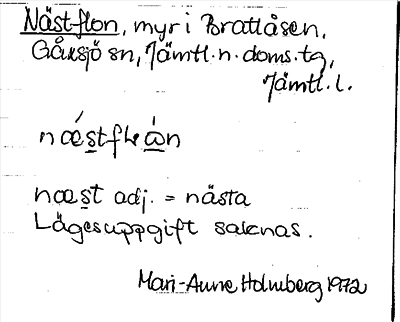 Nästflon, myr i Brattåsen,
Gåxsjö sn, Jämtl. n. doms. tg,
Jämtl. l.
næ̀stflὼn
næst adj. = nästa
Lägesuppgift saknas.
Mari-Anne Holmberg 1972